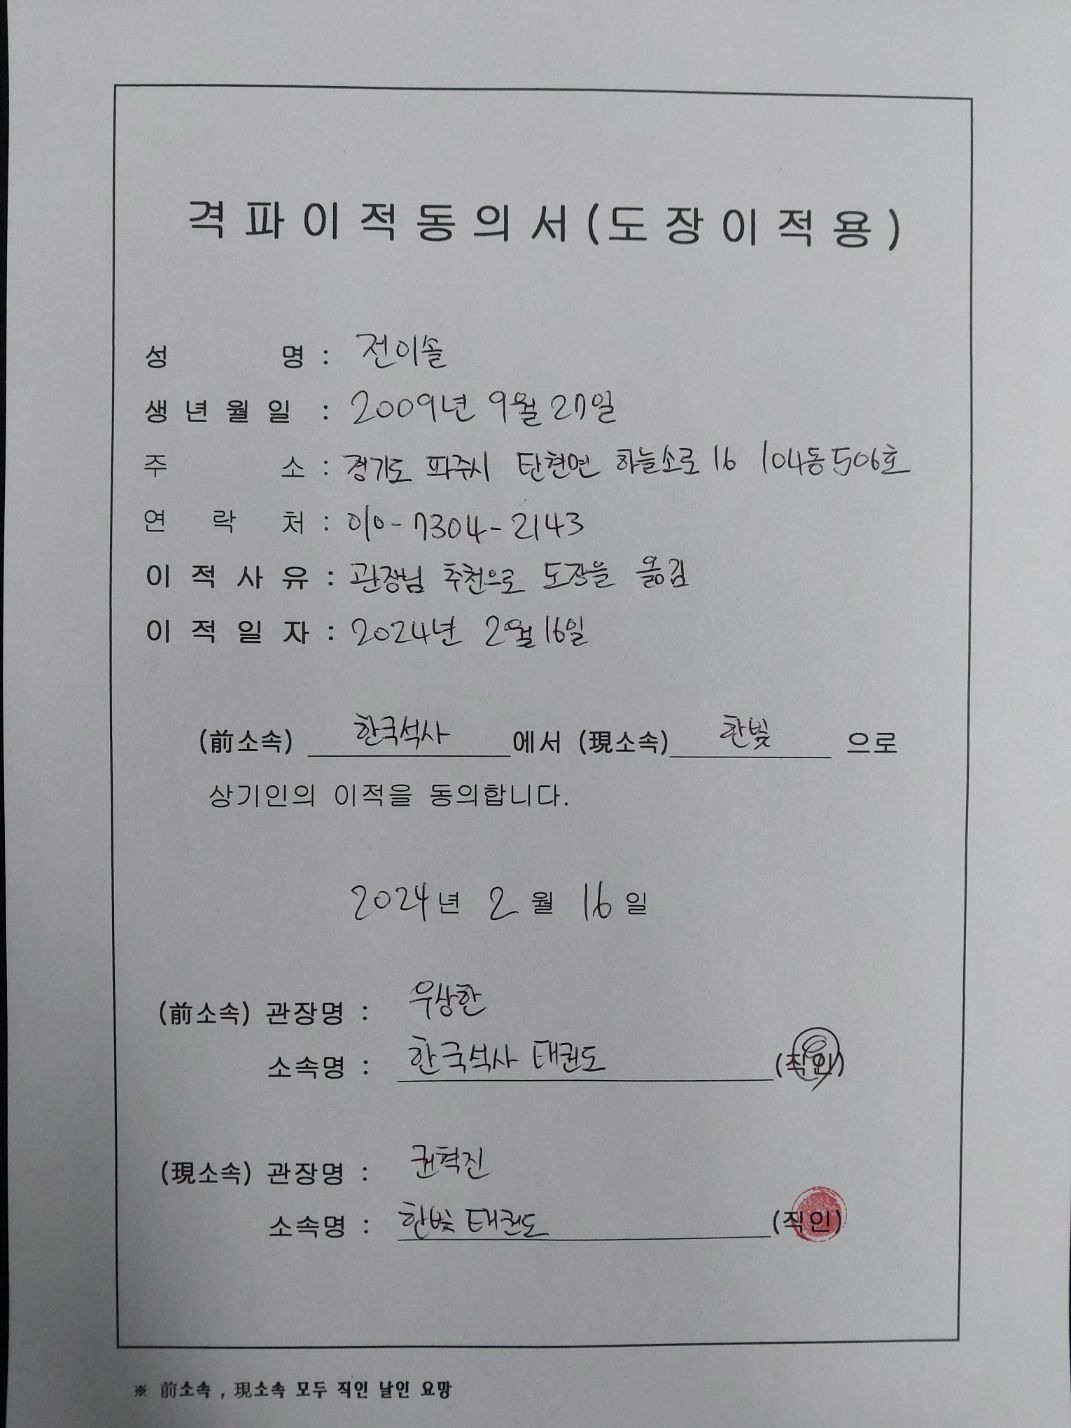 격파이적동의서(도장이적용)
성 명 : 전이솔
생년월일 : 2009년 9월 27일
주 소 : 경기도 파주시 탄현면 하늘소로 16 104동 506호
연 락 처 : 010-7304-2143
이 적 사 유 : 관장님 추천으로 도장을 옮김
이 적 일 자 : 2024년 2월 16일
(前소속) 한국석사 에서 (現소속) 한빛 으로
상기인의 이적을 동의합니다.
2024년 2월 16일
(前소속) 관장명 : 우상한
소속명 : 한국석사 태권도 (직인)
(現소속) 관장명 : 권혁진
소속명 : 한빛 태권도 (직인)
※ 前소속 , 現소속 모두 직인 날인 요망